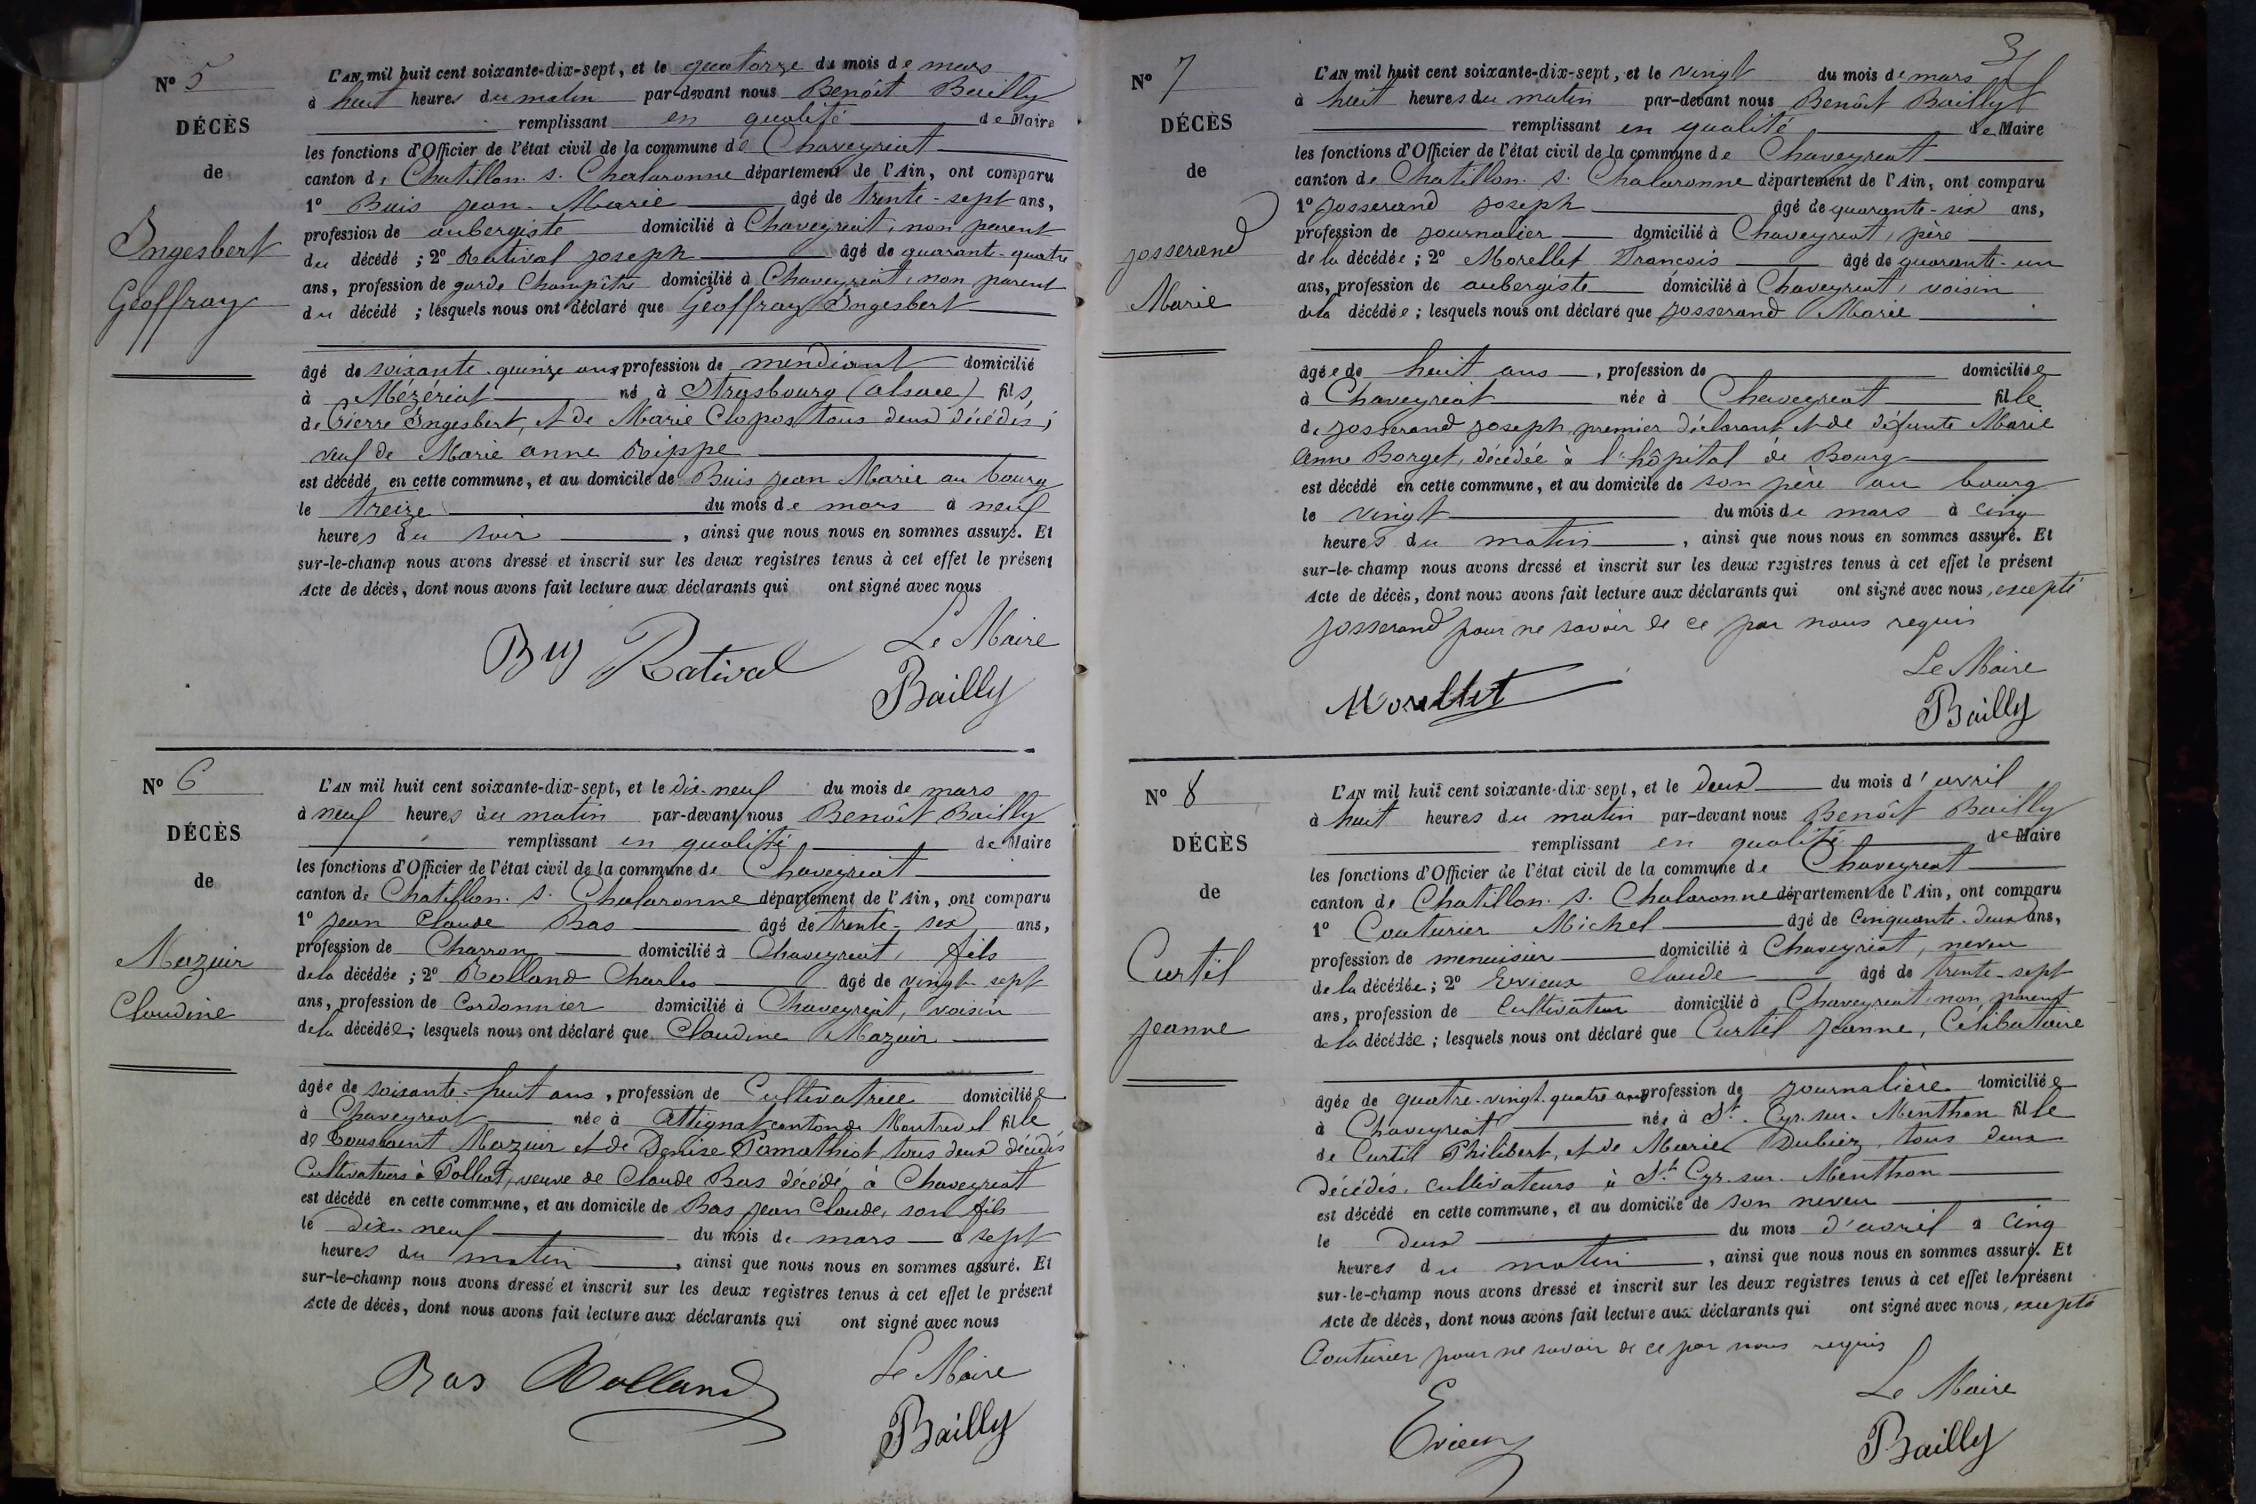 N° 5
DÉCÈS
de
Ingesbert
Geoffray
L'AN mil huit cent soixante-dix-sept, et le quatorze du mois de mars
à huit heures du matin par-devant nous Benoît Bailly
remplissant en qualité de Maire
les fonctions d'Officier de l'état civil de la commune de Chaveyriat
canton de Chatillon s. Chalaronne département de l'Ain, ont comparu
1° Buis Jean-Marie âgé de trente-sept ans,
profession de aubergiste domicilié à Chaveyriat, non parent
du décédé ; 2° Ratival Joseph âgé de quarante-quatre
ans, profession de garde Champêtre domicilié à Chaveyriat, non parent
du décédé ; lesquels nous ont déclaré que Geoffray Ingesbert
âgé de soixante-quinze ans profession de mendiant domicilié
à Mézériat né à Strasbourg (alsace) fils
de Pierre Ingesbert, et de Marie Clopos tous deux décédés ;
veuf de Marie anne Rippe
est décédé en cette commune, et au domicile de Buis Jean Marie au bourg
le treize du mois de mars à neuf
heures du soir , ainsi que nous nous en sommes assuré. Et
sur-le-champ nous avons dressé et inscrit sur les deux registres tenus à cet effet le présent
Acte de décès, dont nous avons fait lecture aux déclarants qui ont signé avec nous
Buy Ratival Le Maire
Bailly
N° 6
DÉCÈS
de
Mazuir
Claudine
L'AN mil huit cent soixante-dix-sept, et le dix-neuf du mois de mars
à neuf heures du matin par-devant nous Benoît Bailly
remplissant en qualité de Maire
les fonctions d'Officier de l'état civil de la commune de Chaveyriat
canton de Chatillon s. Chalaronne département de l'Ain, ont comparu
1° Jean Claude Bas âgé de trente-six ans,
profession de Charron domicilié à Chaveyriat, fils
de la décédée ; 2° Rolland Charles âgé de vingt-sept
ans, profession de Cordonnier domicilié à Chaveyriat, voisin
de la décédée ; lesquels nous ont déclaré que Claudine Mazuir
âgée de soixante-huit ans , profession de Cultivatrice domiciliée
à Chaveyriat née à attignat canton de Montrevel fille
de Toussaint Mazuir et de Denise Pamathiot, tous deux décédés
Cultivateurs à Polliat, veuve de Claude Bas décédé à Chaveyriat
est décédé en cette commune, et au domicile de Bas Jean Claude, son fils
le Dix-neuf du mois de mars à sept
heures du matin , ainsi que nous nous en sommes assuré. Et
sur-le-champ nous avons dressé et inscrit sur les deux registres tenus à cet effet le présent
Acte de décès, dont nous avons fait lecture aux déclarants qui ont signé avec nous
Bas Rolland Le Maire
Bailly
3
N° 7
DÉCÈS
de
Josserand
Marie
L'AN mil huit cent soixante-dix-sept, et le vingt du mois de mars
à huit heures du matin par-devant nous Benoît Bailly
remplissant en qualité de Maire
les fonctions d'Officier de l'état civil de la commune de Chaveyriat
canton de Chatillon s. Chalaronne département de l'Ain, ont comparu
1° Josserand Joseph âgé de quarante-six ans,
profession de Journalier domicilié à Chaveyriat, père
de la décédée ; 2° Morellet François âgé de quarante-un
ans, profession de aubergiste domicilié à Chaveyriat, voisin
de la décédée ; lesquels nous ont déclaré que Josserand Marie
âgée de huit ans , profession de domiciliée
à Chaveyriat née à Chaveyriat fille
de Josserand Joseph, premier déclarant et de défunte Marie
Anne Borget, décédée à l'hôpital de Bourg
est décédé en cette commune, et au domicile de son père au bourg
le vingt du mois de mars à cinq
heures du matin , ainsi que nous nous en sommes assuré. Et
sur-le-champ nous avons dressé et inscrit sur les deux registres tenus à cet effet le présent
Acte de décès, dont nous avons fait lecture aux déclarants qui ont signé avec nous, excepté
Josserand pour ne savoir de ce par nous requis
Le Maire
Morellet Bailly
N° 8
DÉCÈS
de
Curtil
Jeanne
L'AN mil huit cent soixante-dix-sept, et le deux du mois d'avril
à huit heures du matin par-devant nous Benoît Bailly
remplissant en qualité de Maire
les fonctions d'Officier de l'état civil de la commune de Chaveyriat
canton de Chatillon s. Chalaronne département de l'Ain, ont comparu
1° Couturier Michel âgé de Cinquante-deux ans,
profession de menuisier domicilié à Chaveyriat, neveu
de la décédée ; 2° Evieux Claude âgé de trente-sept
ans, profession de Cultivateur domicilié à Chaveyriat, non parent
de la décédée ; lesquels nous ont déclaré que Curtil Jeanne, Célibataire
âgée de quatre-vingt-quatre ans profession de Journalière domiciliée
à Chaveyriat née à St. Cyr-sur-Menthon fille
de Curtil Philibert, et de Marie Dubiez tous deux
décédés, cultivateurs à St. Cyr-sur-Menthon
est décédé en cette commune, et au domicile de son neveu
le Deux du mois d'avril à cinq
heures du matin , ainsi que nous nous en sommes assuré. Et
sur-le-champ nous avons dressé et inscrit sur les deux registres tenus à cet effet le présent
Acte de décès, dont nous avons fait lecture aux déclarants qui ont signé avec nous, excepté
Couturier pour ne savoir de ce par nous requis
Le Maire
Evieux Bailly